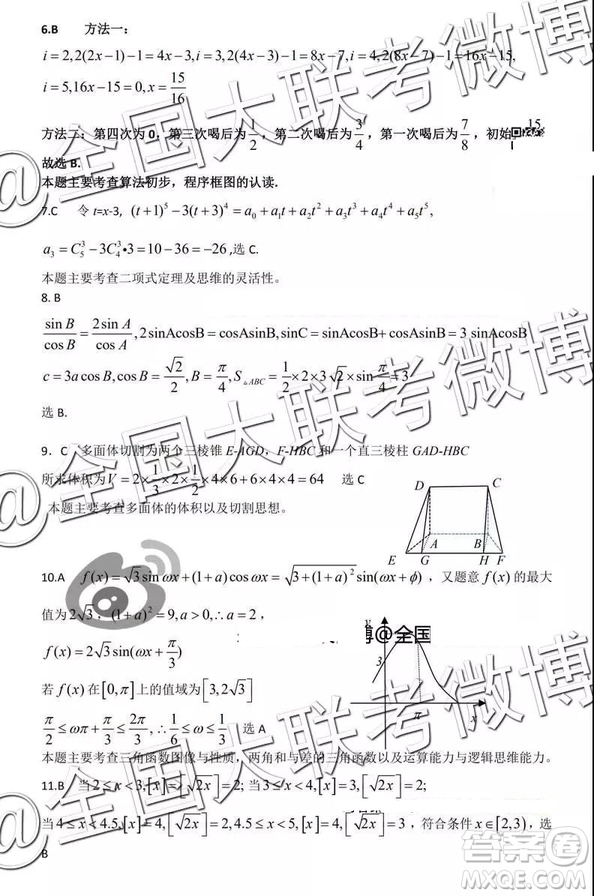 6.B 方法一：
i=2,2(2x-1)-1=4x-3,i=3,2(4x-3)-1=8x-7,i=4,2(8x-7)-1=16x-15,
i=5,16x-15=0,x=15/16
方法二：第四次为 0，第三次喝后为1/2，第二次喝后为3/4，第一次喝后为7/8，初始15
故选 B.
本题主要考查算法初步，程序框图的认读.
7.C 令 t=x-3, (t+1)^5-3(t+3)^4=a_0+a_1t+a_2t^2+a_3t^3+a_4t^4+a_5t^5,
a_3=C_5^3-3C_4^3•3=10-36=-26,选 C.
本题主要考查二项式定理及思维的灵活性。
8. B
sin B/cos B=2sin A/cos A,2sinAcosB=cosAsinB,sinC=sinAcosB+cosAsinB=3 sinAcosB
c=3a cos B,cos B=√2/2,B=π/4,S_△ABC=1/2×2×3√2×sinπ/4=3
选 B.
9．C 多面体切割为两个三棱锥 E-AGD，F-HBC 和一个直三棱柱 GAD-HBC
所求体积为V=2×1/3×2×1/2×4×6+4×4×4=64 选 C
本题主要考多面体的体积以及切割思想。
D C
A B
E G H F
10.A f(x)=√3sin ωx+(1+a)cos ωx=√(3+(1+a)^2)sin(ωx+φ)，又题意 f(x) 的最大
值为2√3，(1+a)^2=9,a>0,∴a=2，
f(x)=2√3sin(ωx+π/3)
若 f(x) 在[0,π]上的值域为[3,2√3]
π/2≤ωπ+π/3≤2π/3,∴1/6≤ω≤1/3 选 A
y
3
π x
本题主要考查三角函数图像与性质，两角和与差的三角函数以及运算能力与逻辑思维能力。
11.B 当2≤x<3,[x]=[√2x]=2;当3≤x<4,[x]=3,[√2x]=2;
当4≤x<4.5,[x]=4,[√2x]=2,4.5≤x<5,[x]=4,[√2x]=3，符合条件x∈[2,3)，选
B
@全国大联考微博
@全国大联考微博
博@全国
答案圈
MXQE.COM